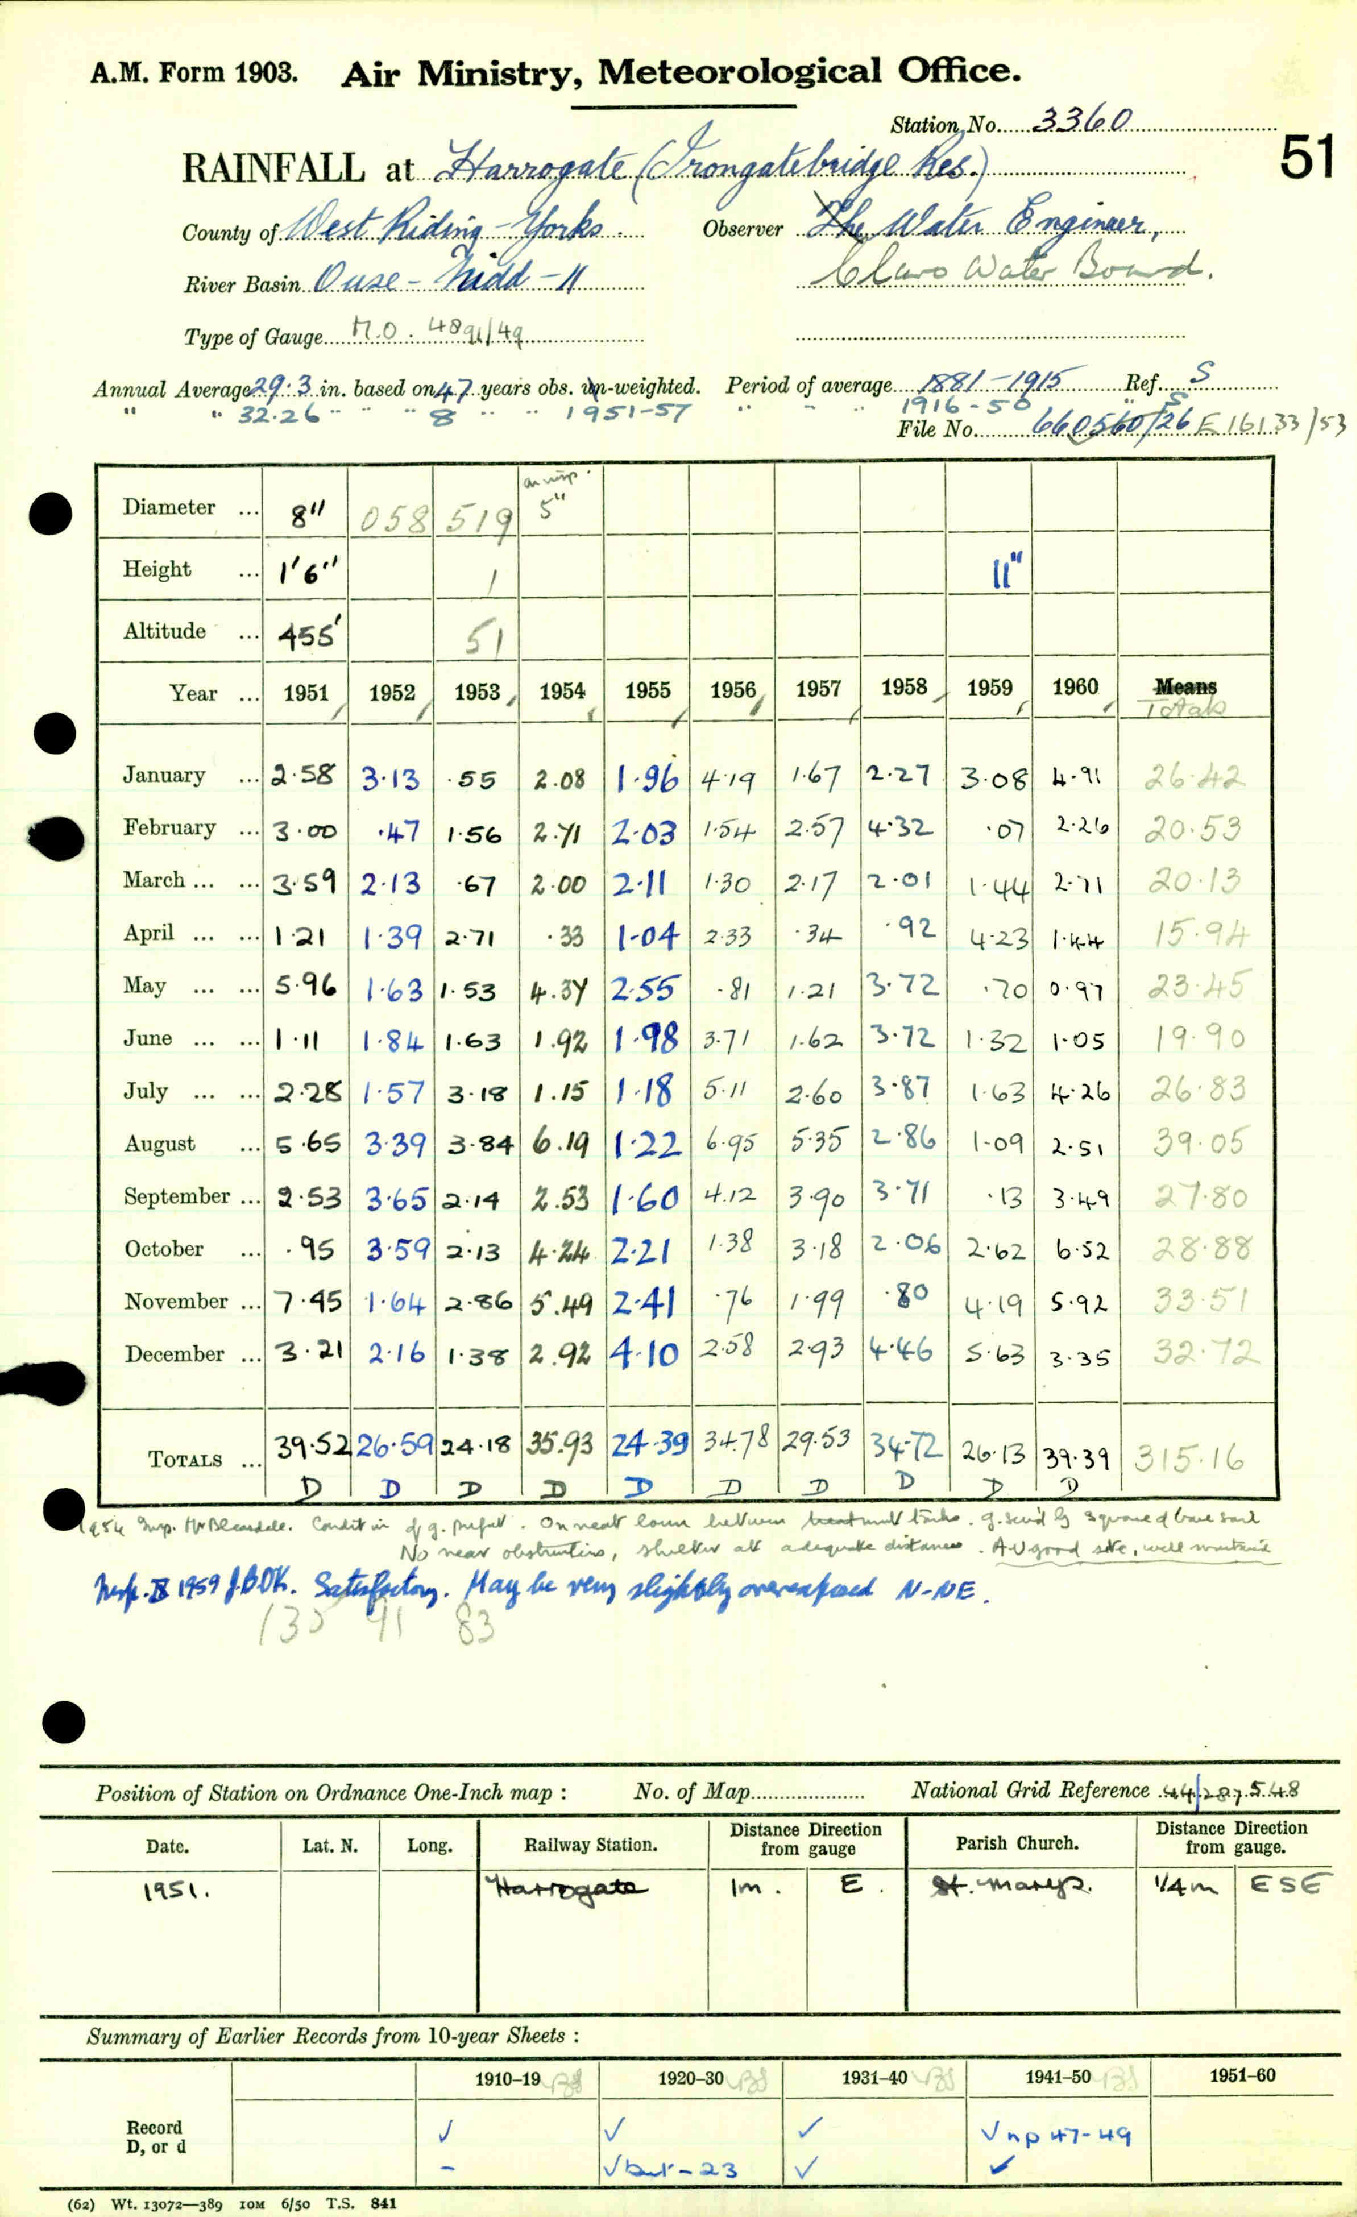 A.M. Form 1903. Air Ministry, Meteorological Office.
Station No. 3360
51
RAINFALL at Harrogate (Irongatebridge Res.)
County of West Riding - Yorks. Observer The Water Engineer,
River Basin Ouse - Nidd - 11 Claro Water Board.
Type of Gauge M.O. 4891/49
Annual Average 29.3 in. based on 47 years obs. un-weighted. Period of average 1881-1915 Ref. S
" " 32.26 " " " 8 " " 1951-57 " " " 1916-50 " S
File No. 660560/26 E16133/53
Diameter ... 8" 058 519 5"
Height ... 1'6" 1 11"
Altitude ... 455' 51
Year ... 1951 1952 1953 1954 1955 1956 1957 1958 1959 1960 Means
Totals
January ... 2.58 3.13 .55 2.08 1.96 4.19 1.67 2.27 3.08 4.91 26.42
February ... 3.00 .47 1.56 2.71 2.03 1.54 2.57 4.32 .07 2.26 20.53
March ... ... 3.59 2.13 .67 2.00 2.11 1.30 2.17 2.01 1.44 2.71 20.13
April ... ... 1.21 1.39 2.71 .33 1.04 2.33 .34 .92 4.23 1.44 15.94
May ... ... 5.96 1.63 1.53 4.37 2.55 .81 1.21 3.72 .70 0.97 23.45
June ... ... 1.11 1.84 1.63 1.92 1.98 3.71 1.62 3.72 1.32 1.05 19.90
July ... ... 2.28 1.57 3.18 1.15 1.18 5.11 2.60 3.87 1.63 4.26 26.83
August ... 5.65 3.39 3.84 6.19 1.22 6.95 5.35 2.86 1.09 2.51 39.05
September ... 2.53 3.65 2.14 2.53 1.60 4.12 3.90 3.71 .13 3.49 27.80
October ... .95 3.59 2.13 4.24 2.21 1.38 3.18 2.06 2.62 6.52 28.88
November ... 7.45 1.64 2.86 5.49 2.41 .76 1.99 .80 4.19 5.92 33.51
December ... 3.21 2.16 1.38 2.92 4.10 2.58 2.93 4.46 5.63 3.35 32.72
TOTALS ... 39.52 26.59 24.18 35.93 24.39 34.78 29.53 34.72 26.13 39.39 315.16
D D D D D D D D D D
1954 Insp. Condition of g. perfect. On neat lawn between treatment tanks.
No near obstructions, shelter at adequate distances. A v good site, well
Insp. IX 1959 Satisfactory. May be very slightly overexposed N-NE.
130 91 83
Position of Station on Ordnance One-Inch map : No. of Map National Grid Reference 44/287548
Date. Lat. N. Long. Railway Station. Distance from gauge Direction Parish Church. Distance from gauge. Direction
1951. Harrogate 1m. E. St. Marys. 1/4m ESE
Summary of Earlier Records from 10-year Sheets :
1910-19 1920-30 1931-40 1941-50 1951-60
Record ✓ ✓ ✓ ✓ np 47-49
D, or d - ✓ but -23 ✓ ✓
(62) Wt. 13072—389 10M 6/50 T.S. 841